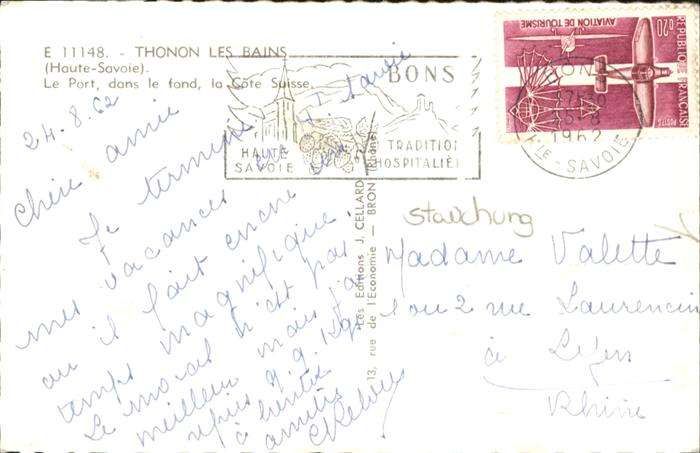 E 11148. - THONON LES BAINS
(Haute-Savoie).
Le Port, dans le fond, la Côte Suisse.
24.8.62
Chère amie
Je termine
mes vacances en Hte Savoie
ou il fait encore un
temps magnifique.
Le moral n'est pas
meilleur mais j'ai
repris 9 Kgs
à bientôt
amitiés
BONS
HAUTE
SAVOIE
TRADITION
HOSPITALIÈRE
Les Editions J. CELLARD
13, rue de l'Economie - BRON (Rhône)
REPUBLIQUE FRANÇAISE
0,20
AVIATION DE TOURISME
POSTES
1962
HTE - SAVOIE
stauchung
Madame Valette
1 ou 2 rue Laurencin
à Lyon
Rhône